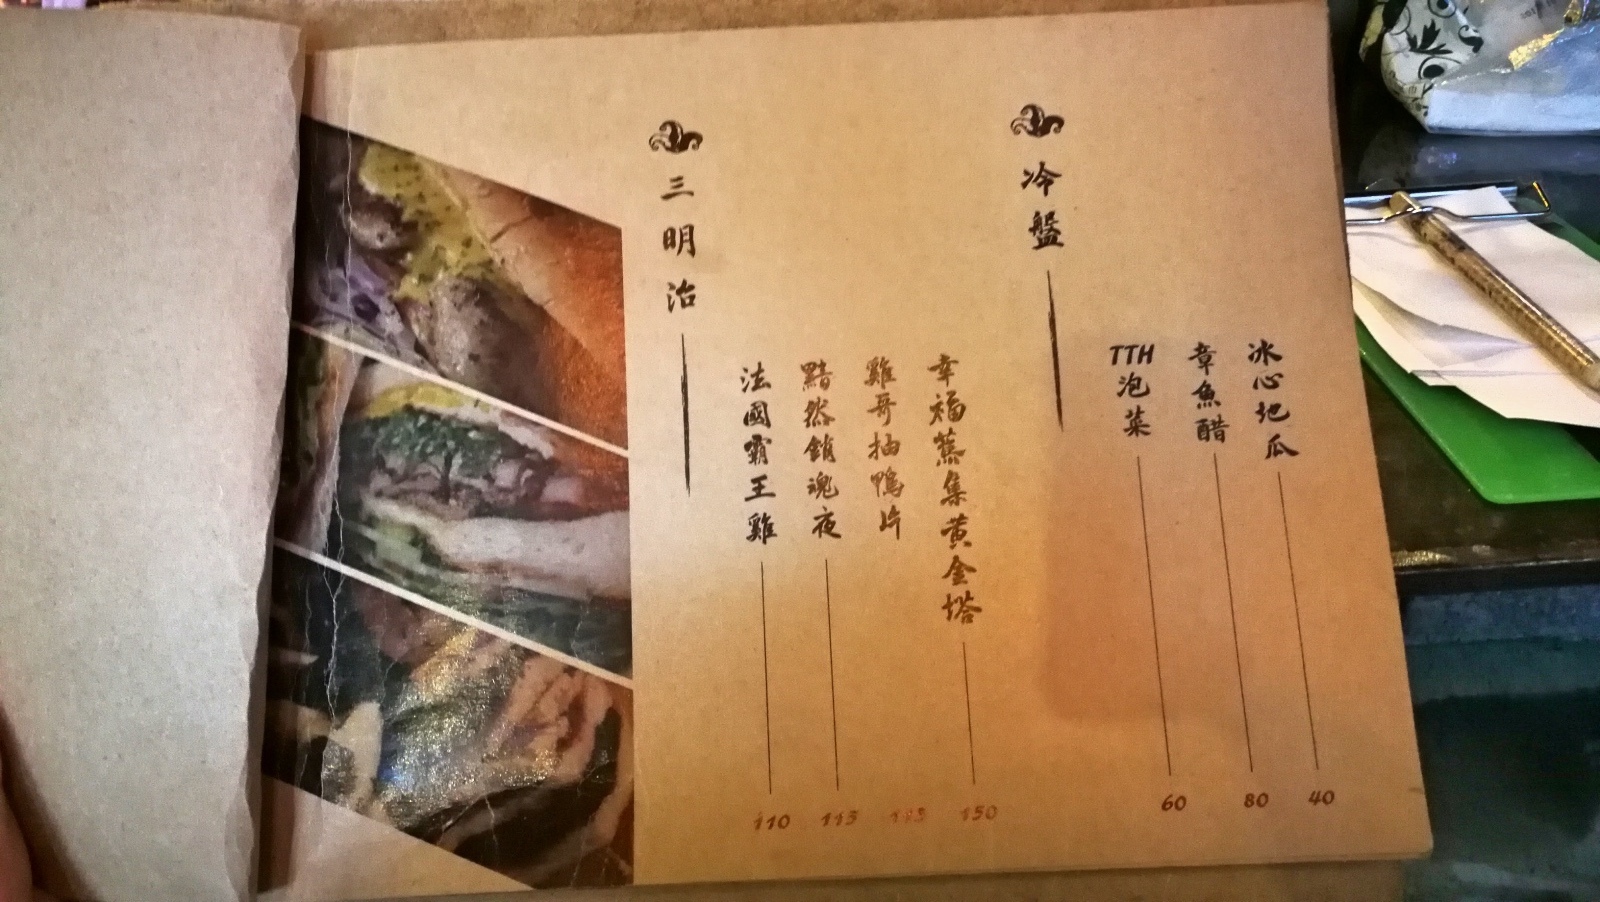 冷盤
冰心地瓜
40
章魚醋
80
TTH泡菜
60
三明治
幸福蒸集黃金塔
150
雞哥抽鴨片
黯然銷魂夜
115
法國霸王雞
110